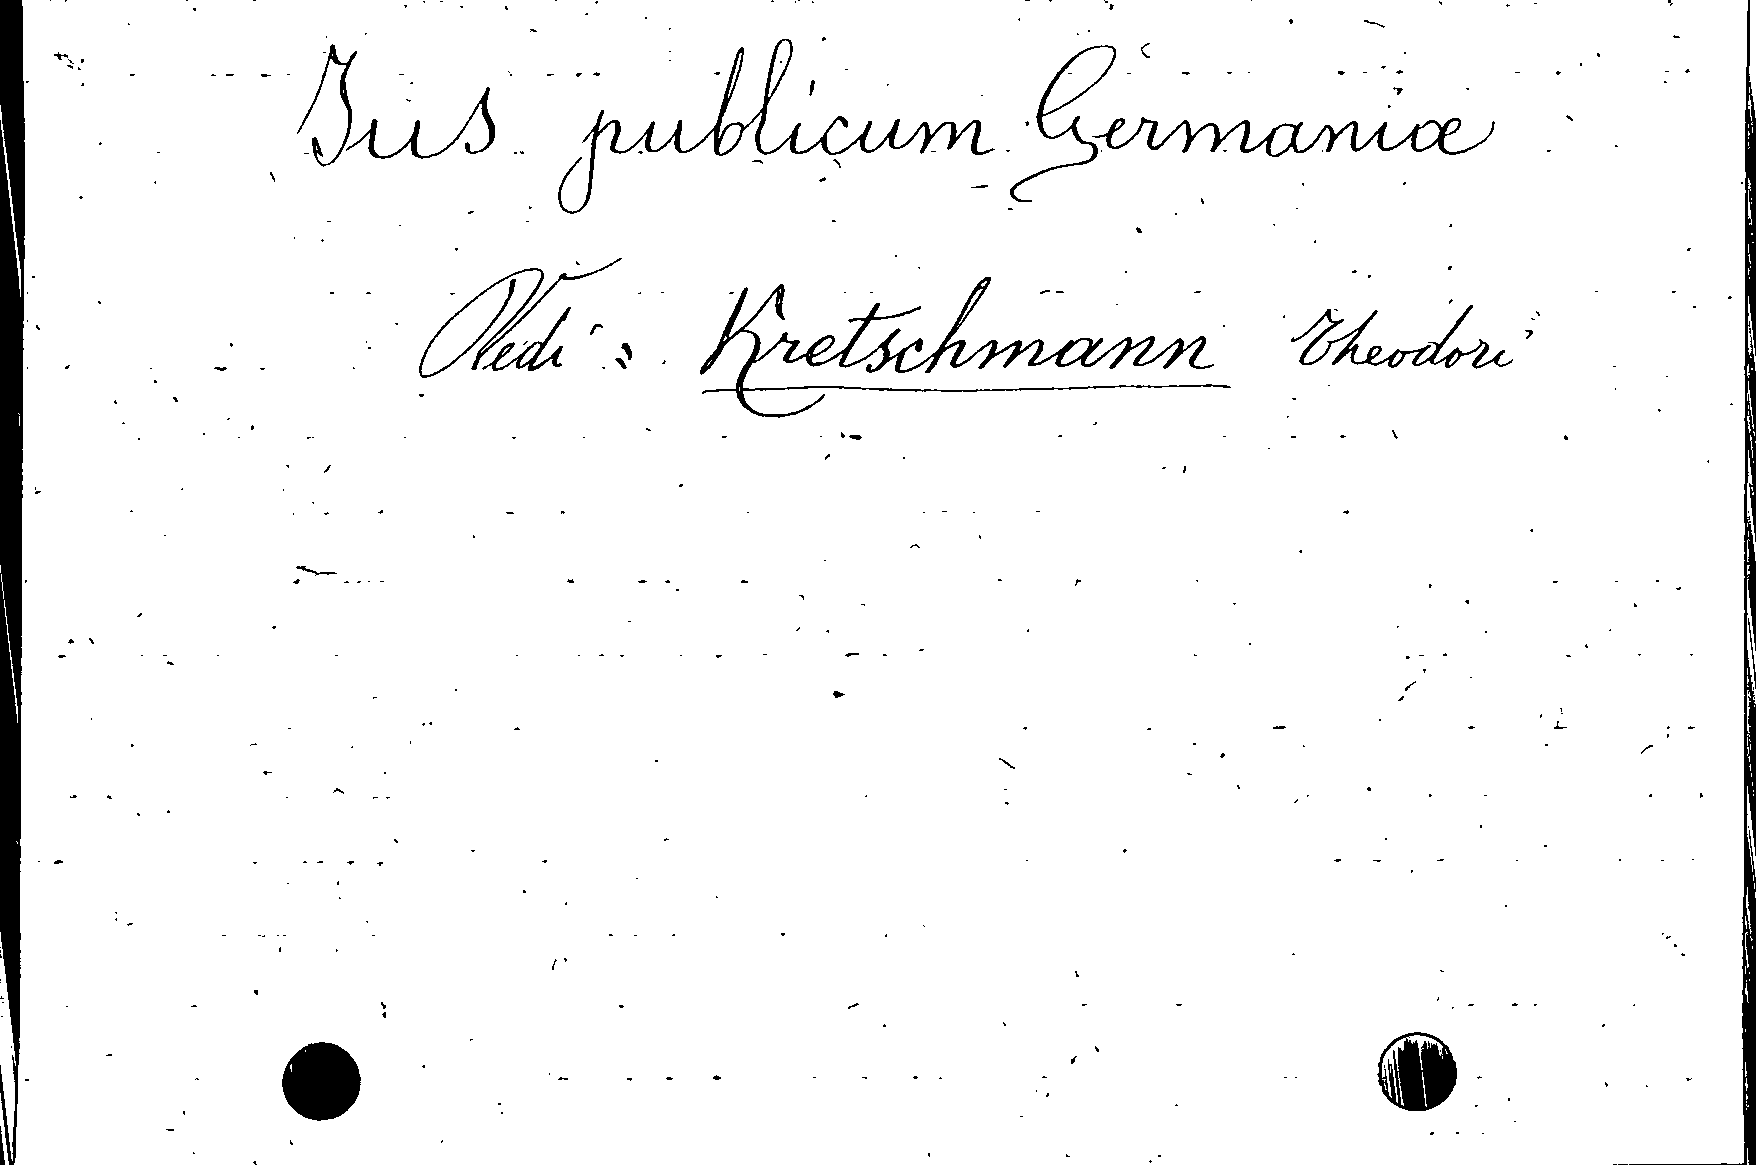 Jus publicum Germaniæ
Vedi: Kretschmann Theodori